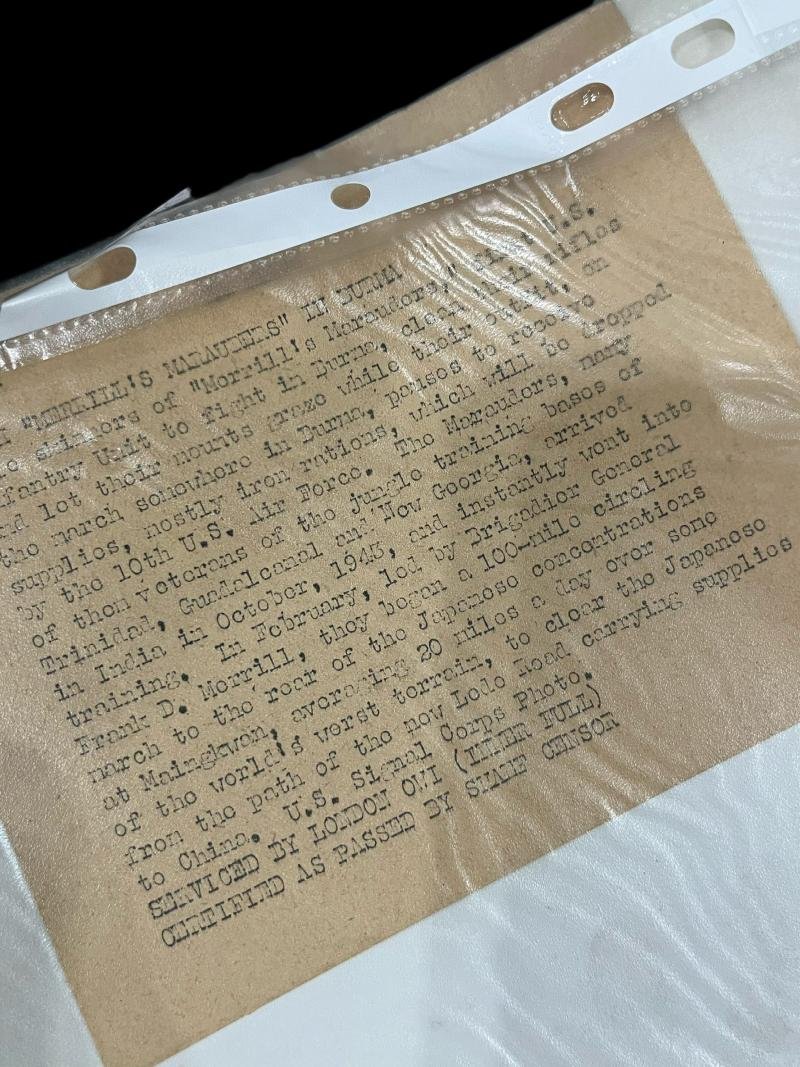 "MERRILL'S MARAUDERS" IN BURMA
skinners of "Merrill's Marauders," first U.S.
fantry Unit to fight in Burma, clean their rifles
nd let their mounts graze while their outfit, on
the march somewhere in Burma, pauses to receive
supplies, mostly iron rations, which will be dropped
by the 10th U.S. Air Force. The Marauders, many
of them veterans of the jungle training bases of
Trinidad, Guadalcanal and New Georgia, arrived
in India in October, 1943, and instantly went into
training. In February, led by Brigadier General
Frank D. Merrill, they began a 100-mile circling
march to the rear of the Japanese concentrations
at Maingkwan, averaging 20 miles a day over some
of the world's worst terrain, to clear the Japanese
from the path of the new Ledo Road carrying supplies
to China. U.S. Signal Corps Photo.
SERVICED BY LONDON OWI (UPPER FULL)
CERTIFIED AS PASSED BY SHAEF CENSOR